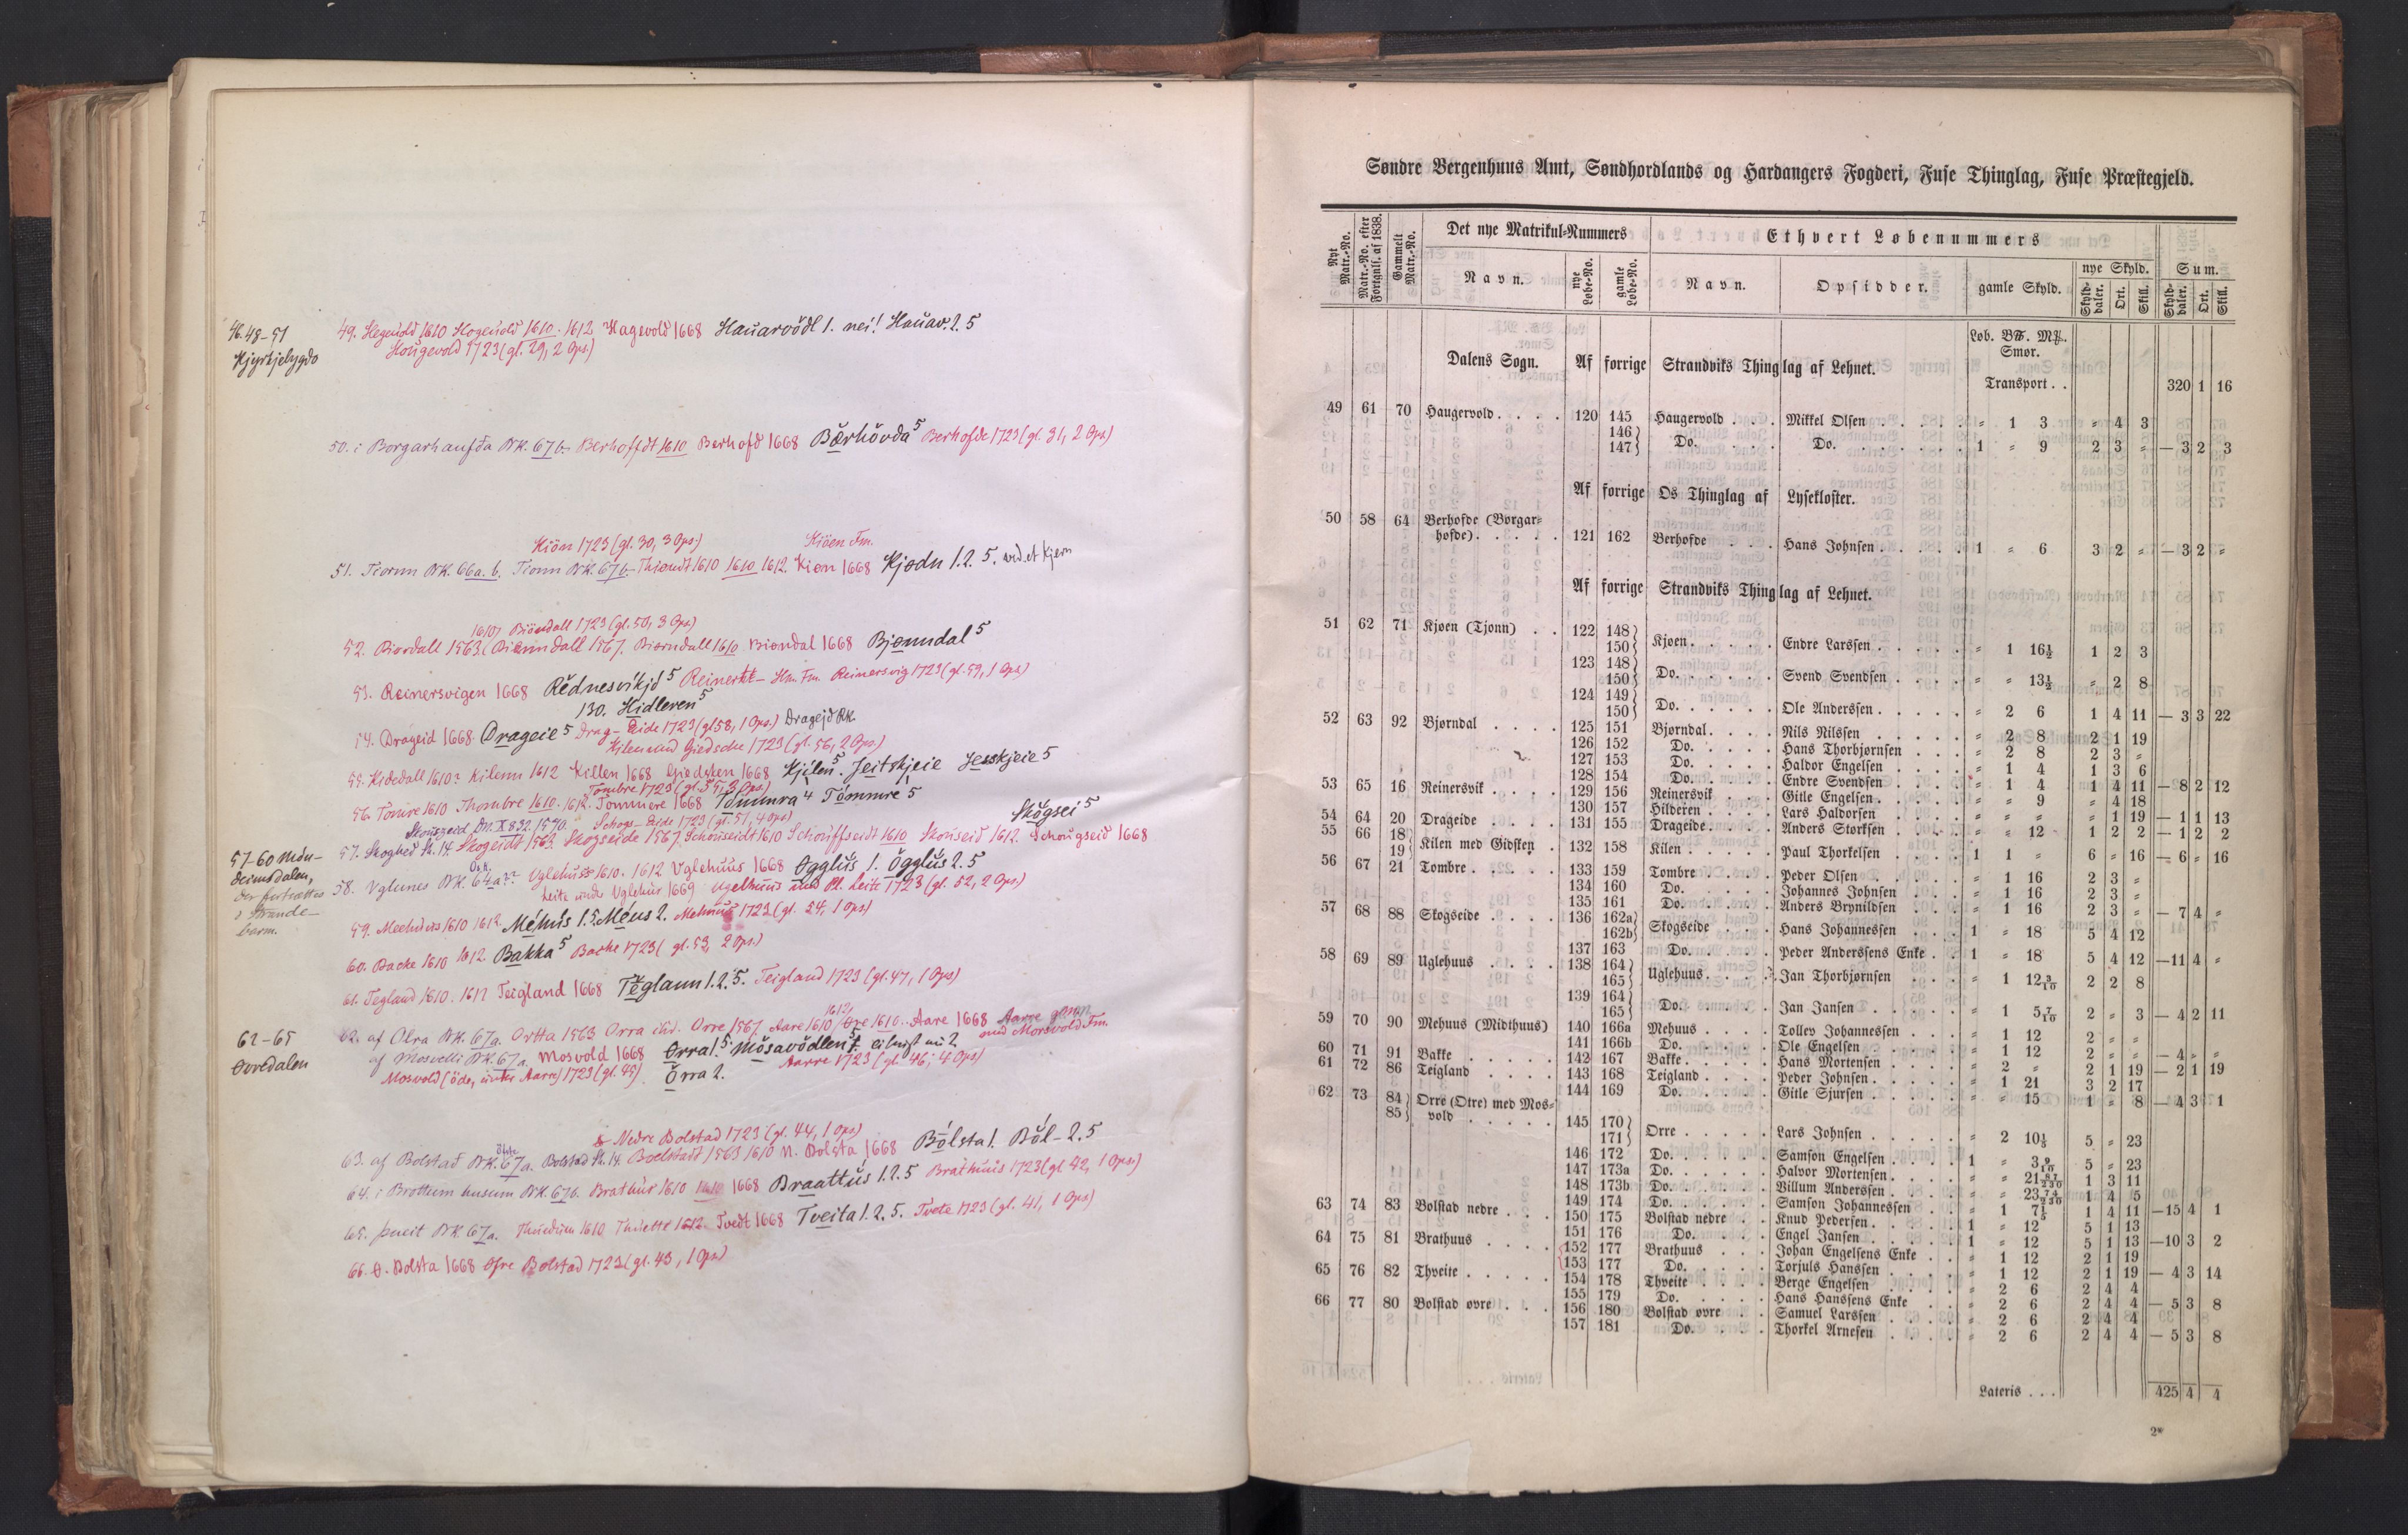 46.48-51
Kyrkjebygdo
49. Heguold 1610 Hogeuold 1610. 1612 Hagevold 1668 Hauarvödl 1. nei! Hauav. 2. 5
Hougevold 1723 (gl. 29, 2 Ops.)
50. i Borgarhaufða BK. 67b. Berhoffdt 1610 Berhofd 1668 Bærhövda 5 Berhofde 1723 (gl. 31, 2 Ops)
Kiön 1723 (gl. 30, 3 Ops.) Kiöen Fm.
51. Tiornn BK. 66a. b. Tionn BK. 67b. Thiondt 1610 1610 1612. Kiøn 1668 Kjødn 1. 2. 5. ved et Kjern
1610, Biöndall 1723 (gl. 50, 3 Ops)
52. Biordall 1563. Biørndall 1567. Biørndall 1610 Biøndal 1668 Bjønndal 5
53. Reinersvigen 1668 Rednesvikjo 5 Reinertt- Fm. Reinersvig 1723 (gl. 59, 1 Ops)
130. Hidleren 5
54. Drageid 1668. Drageie 5 Drag-Eide 1723 (gl 58, 1 Ops.) Drageid RK.
Kilen med Giedschen 1723 (gl. 56, 2 Ops.)
55. Kidedall 1610? Kilenn 1612 Killen 1668 Giedsken 1668 Kjilen 5. Jeitskjeie Jesskjeie 5
Tombre 1723 (gl. 55, 3 Ops.)
56. Tomre 1610 Thombre 1610. 1612. Tommere 1668 Tömmra 4 Tömmre 5
Skougzeid DN. X 832. 1570. Schogs-Eide 1723 (gl. 51, 4 Ops) Skögsei 5
57-60 Mdn-
deimsdalen,
der fortsættes
i Strande-
barm.
57. Skoghed St. 14. Skogeidt 1563. Skogseide 1567. Schouseidt 1610 Schouffseidt 1610 Skouseid 1612. Schougseid 1668
58. Vglunes BK. 64a?? Uglehuss 1610. 1612 Uglehuus 1668 Ogglus 1. Ögglus 2. 5
Leite under Uglehus 1669 Ugelhuus med Pl. Leite 1723 (gl. 52, 2 Ops.)
59. Meehuus 1610 1612. Méhus 1. 5. Méus 2. Mehuus 1723 (gl. 54, 1 Ops)
60. Backe 1610 1612. Bakka 5 Backe 1723 (gl. 53, 2 Ops.)
61. Tegland 1610. 1612 Teigland 1668 Teglann 1. 2. 5. Teigland 1723 (gl. 47, 1 Ops)
62-65
Øvredalen
62. af Olra BK. 67a. Ortta 1563 Orra ibid. Orre 1567 Aare 1610 1612, Ore 1610. Aare 1668 Aarre
med Morsvold Fm.
af Mosvelli BK. 67a. Mosvold 1668 Orra 1. 5. Mösavödlen 5
Mosvold (öde, under Aarre) 1723 (gl. 45) Örra 2. Aarre 1723 (gl. 46; 4 Ops)
Nedre Bolstad 1723 (gl. 44, 1 Ops)
63. af Bolstad BK. 67a. Bolstad St. 14. Boelstadt 1563 1610 N. Bolsta 1668 Bölsta 1. Böl-2. 5
64. i Brottum husum BK. 67b. Brathus 1610 1610 1668 Braattus 1. 2. 5 Brathuus 1723 (gl 42, 1 Ops)
65. þueit BK. 67a. Thuedten 1610 Thuette 1612. Tvedt 1668 Tveita 1. 2. 5. Tvete 1723 (gl. 41, 1 Ops)
66. Ø. Bolsta 1668 Øfre Bolstad 1723 (gl. 43, 1 Ops)
Søndre Bergenhuus Amt, Søndhordlands og Hardangers Fogderi, Fuse Thinglag, Fuse Præstegjeld.
Nyt Matr.-No. Matr.-No. efter Fortgnls. af 1838. Gammelt Matr.-No. Det nye Matrikul-Nummers Ethvert Løbenummers
Navn. nye Løbe-No. gamle Løbe-No. Navn. Opsidder. gamle Skyld. nye Skyld. Sum.
Skylddaler. Ort. Skill. Skylddaler. Ort. Skill.
Løb. B℔. M℔.
Smør.
Dalens Sogn. Af forrige Strandviks Thinglag af Lehnet.
Transport . . 320 1 16
49 61 70 Haugervold . . . . 120 145 Haugervold . . . Mikkel Olsen . . . . . „ 1 3 „ 4 3
146 147 } Do. . . . . Do. . . . . . 1 „ 9 2 3 „ — 3 2 3
Af forrige Os Thinglag af Lysekloster.
50 58 64 Berhofde (Borgar-
hofde) . . . . . 121 162 Berhofde . . . Hans Johnsen . . . . . 1 „ 6 3 2 „ — 3 2 „
Af forrige Strandviks Thinglag af Lehnet.
51 62 71 Kjøen (Tjonn) . . 122 148 150 } Kjøen . . . . . Endre Larssen . . . . . „ 1 16½ 1 2 3
123 148 150 } Do. . . . . . Svend Svendsen . . . . „ „ 13½ „ 2 8
124 149 150 } Do. . . . . . Ole Anderssen . . . . . „ 2 6 1 4 11 — 3 3 22
52 63 92 Bjørndal . . . . 125 151 Bjørndal . . . . Nils Nilssen . . . . . „ 2 8 2 1 19
126 152 Do. . . . . Hans Thorbjørnsen . . . „ 2 8 2 3 „
127 153 Do. . . . . Haldor Engelsen . . . . „ 1 4 1 3 6
128 154 Do. . . . . Endre Svendsen . . . . „ 1 4 1 4 11 — 8 2 12
53 65 16 Reinersvik . . . . 129 156 Reinersvik . . . Gitle Engelsen . . . . . „ „ 9 „ 4 18
130 157 Hilderen . . . . Lars Haldorsen . . . . „ „ „ „ 1 19 — 1 1 13
54 64 20 Drageide . . . . 131 155 Drageide . . . . Anders Storksen . . . . „ „ 12 1 2 2 — 1 2 2
55 66 18 19 } Kilen med Gidsken . 132 158 Kilen . . . . . Paul Thorkelsen . . . . 1 1 „ 6 „ 16 — 6 „ 16
56 67 21 Tombre . . . . . 133 159 Tombre . . . . Peder Olsen . . . . . „ 1 16 2 3 „
134 160 Do. . . . . Johannes Johnsen . . . „ 1 16 2 3 „
135 161 Do. . . . . Anders Brynildsen . . . „ 1 16 2 3 „ — 7 4 „
57 68 88 Skogseide . . . . 136 162a 162b } Skogseide . . . Hans Johannessen . . . 1 „ 18 5 4 12
137 163 Do. . . . . Peder Anderssens Enke . . 1 „ 18 5 4 12 —11 4 „
58 69 89 Uglehuus . . . . 138 164 165 } Uglehuus . . . . Jan Thorbjørnsen . . . „ 1 12 3/10 2 2 8
139 164 165 } Do. . . . . Jan Jansen . . . . . „ 1 5 7/10 2 „ 3 — 4 2 11
59 70 90 Mehuus (Midthuus) 140 166a Mehuus . . . . Tollev Johannessen . . . „ 1 12 2 „ „
141 166b Do. . . . . Ole Engelsen . . . . . „ 1 12 2 „ „ — 4 „ „
60 71 91 Bakke . . . . . 142 167 Bakke . . . . . Hans Mortensen . . . . „ 2 „ 2 1 19 — 2 1 19
61 72 86 Teigland . . . . 143 168 Teigland . . . . Peder Johnsen . . . . . „ 1 21 3 2 17
144 169 Do. . . . . Gitle Sjursen . . . . . „ „ 15 1 „ 8 — 4 3 1
62 73 84 85 } Orre (Otre) med Mos-
vold . . . . . 145 170 171 } Orre . . . . . Lars Johnsen . . . . . „ 2 10⅕ 5 „ 23
146 172 Do. . . . . . Samson Engelsen . . . . 1 „ 3 9/10 5 „ 23
147 173a Do. . . . . . Halvor Mortensen . . . . „ „ 21 87/230 1 3 11
148 173b Do. . . . . . Villum Anderssen . . . . „ „ 23 74/230 1 4 5
149 174 Do. . . . . . Samson Johannessen . . „ 1 7⅕ 1 4 11 —15 4 1
63 74 83 Bolstad nedre . . . 150 175 Bolstad nedre . . Knud Pedersen . . . . . 1 „ 12 5 1 13
151 176 Do. . . . . Engel Jansen . . . . . 1 „ 12 5 1 13 —10 3 2
64 75 81 Brathuus . . . . 152 177 Brathuus . . . Johan Engelsens Enke . . „ 1 12 2 1 19
153 177 Do. . . . . Torjuls Hanssen . . . . „ 1 12 2 1 19 — 4 3 14
65 76 82 Thveite . . . . . 154 178 Thveite . . . . Berge Engelsen . . . . „ 2 6 2 4 4
155 179 Do. . . . . Hans Hanssens Enke . . „ 2 6 2 4 4 — 5 3 8
66 77 80 Bolstad øvre . . . 156 180 Bolstad øvre . . Samuel Larssen . . . . „ 2 6 2 4 4
157 181 Do. . . . . Thorkel Arnesen . . . . „ 2 6 2 4 4 — 5 3 8
Lateris . . . 425 4 4
2*